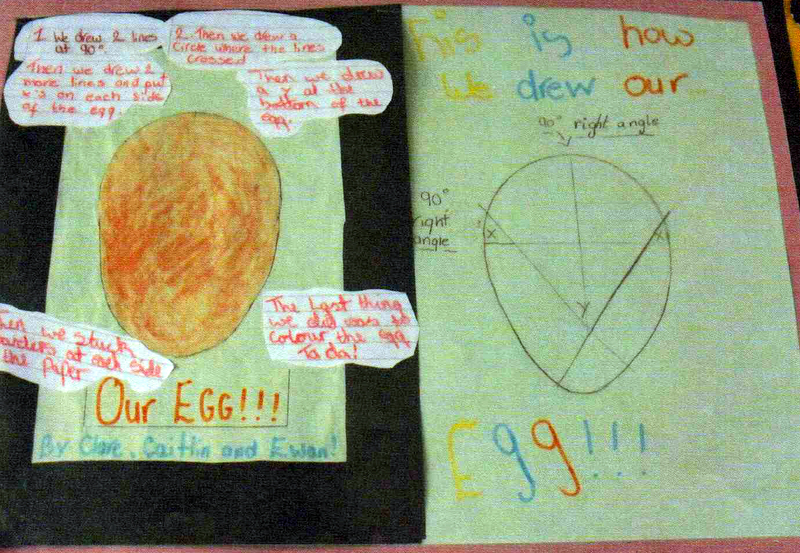 1. We drew 2 lines
at 90°.
2. Then we drew a
Circle where the lines
crossed
Then we drew 2
more lines and put
x's on each side
of the egg.
Then we drew
a Y at the
bottom of the
egg.
Then we stuck
borders at each side
the Paper
The Last thing
we did was to
Colour the egg
Ta da!
Our EGG!!!
By Clare, Caitlin and Ewan!
This is how
We drew our
90° right angle
Y
90°
right
angle
x
x
Y
Egg!!!